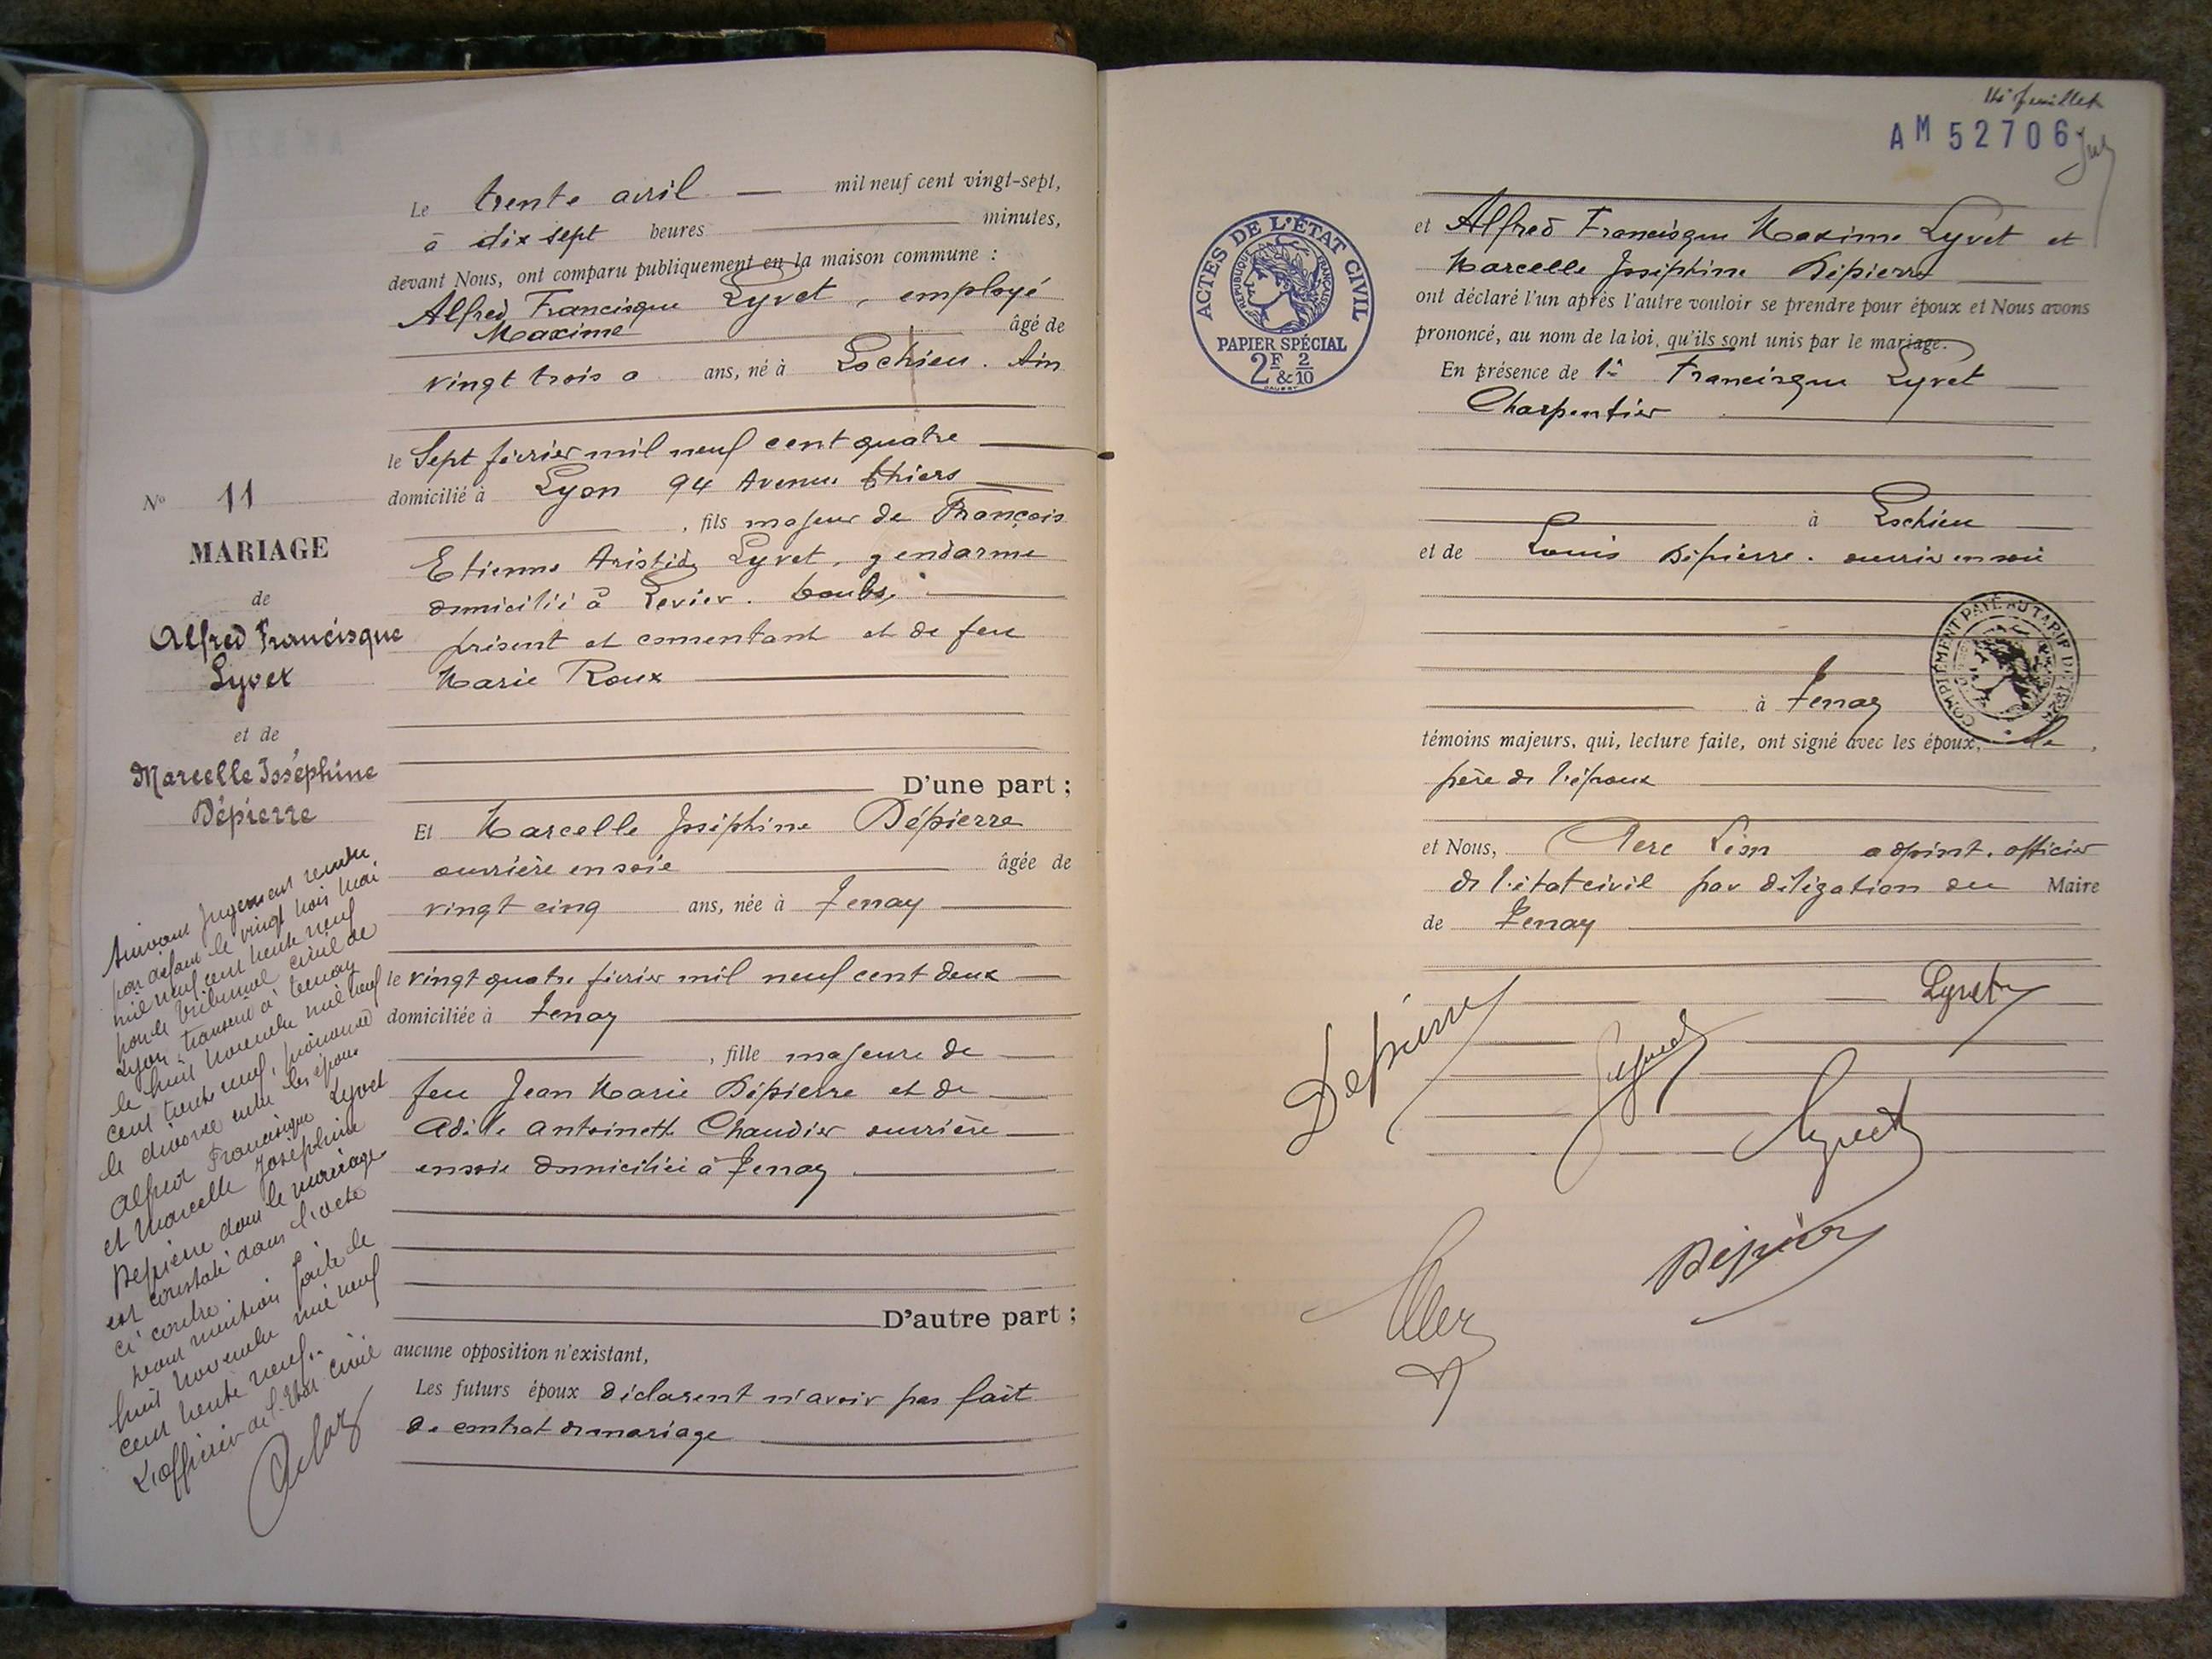 Le trente avril — mil neuf cent vingt-sept,
à dix sept heures minutes,
devant Nous, ont comparu publiquement en la maison commune :
Alfred Francisque Lyvet, employé
Maxime âgé de
vingt trois ans, né à Lochieu. Ain
le Sept février mil neuf cent quatre
domicilié à Lyon 94 Avenue Thiers
, fils majeur de François
Etienne Aristide Lyvet, gendarme
domicilié à Levier. Doubs,
présent et consentant et de feue
Marie Roux
D'une part ;
Et Marcelle Joséphine Dépierre
ouvrière en soie âgée de
vingt cinq ans, née à Tenay
le vingt quatre février mil neuf cent deux
domiciliée à Tenay
, fille majeure de
feu Jean Marie Dépierre et de
Adèle Antoinette Chaudier ouvrière
en soie domiciliée à Tenay
D'autre part ;
aucune opposition n'existant,
Les futurs époux déclarent n'avoir pas fait
de contrat de mariage
No 11
MARIAGE
de
Alfred Francisque
Lyvet
et de
Marcelle Joséphine
Dépierre
Suivant jugement rendu
par défaut le vingt trois mai
mil neuf cent trente neuf
par le tribunal civil de
Lyon, transcrit à Tenay
le huit novembre mil neuf
cent trente neuf, prononcé
le divorce entre les époux
Alfred Francisque Lyvet
et Marcelle Joséphine
Depierre dont le mariage
est constaté dans l'acte
ci contre.
pour mention faite le
huit novembre mil neuf
cent trente neuf.
L'officier de l'Etat Civil
feuillet
AM 52706
ACTES DE L'ÉTAT CIVIL
RÉPUBLIQUE FRANÇAISE
PAPIER SPÉCIAL
2F 2/10
&
et Alfred Francisque Maxime Lyvet et
Marcelle Joséphine Dépierre
ont déclaré l'un après l'autre vouloir se prendre pour époux et Nous avons
prononcé, au nom de la loi, qu'ils sont unis par le mariage.
En présence de Francisque Lyvet
Charpentier
à Lochieu
et de Louis Dépierre. ouvrier en soie
COMPLÉMENT PAYÉ AU TARIF DE
à Tenay
témoins majeurs, qui, lecture faite, ont signé avec les époux, le
père de l'époux
et Nous, Léon adjoint, officier
de l'état civil par délégation du Maire
de Tenay
Lyvet
Depierre
Lyvet
Dépierre